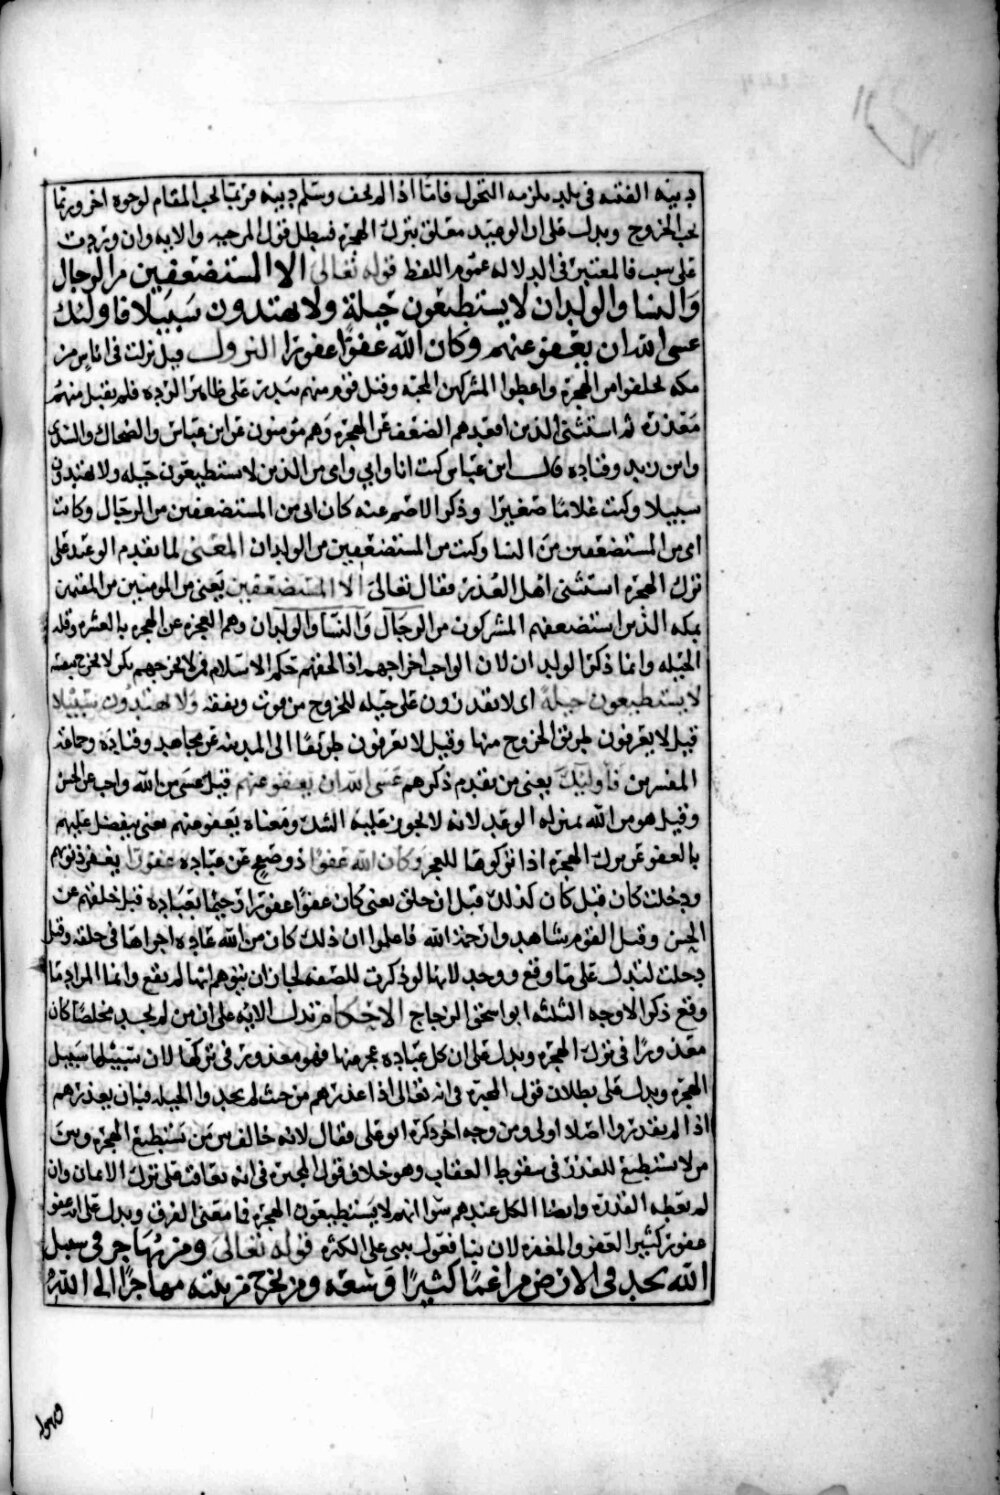 دينه الفتنه في بلد يلزمه التحول فاما اذا لم يخف وسلم دينه فربما يجب المقام لوجوه اخر وربما
يجب الخروج ويدل على ان الوعيد معلق بترك الهجرة فبطل قول المرجيه والايه وان وردت
على سبب فالمعتبر في الدلاله عموم اللفظ قوله تعالى الا المستضعفين من الرجال
والنسا والولدان لا يستطيعون حيلة ولا يهتدون سبيلا فاولئك
عسى الله ان يعفو عنهم وكان الله عفوا غفورا النزول قيل نزلت في اناس من
مكه تخلفوا من الهجرة واعطوا المشركين المحبه وقتل قوم منهم ببدر على ظاهر الرده فلم يقبل منهم
معذرة ثم استثنى الذين اقعدهم الضعف عن الهجرة وهم مؤمنون عن ابن عباس والضحاك والسدى
وابن زيد وقتاده قال ابن عباس كنت انا وابي وامي من الذين لا يستطيعون حيله ولا يهتدون
سبيلا وكنت غلاما صغيرا وذكر الاصم عنه كان ابي من المستضعفين من الرجال وكانت
امي من المستضعفين من النسا وكنت من المستضعفين من الولدان المعنى لما تقدم الوعيد على
ترك الهجرة استثنى اهل العذر فقال تعالى الا المستضعفين يعني من المومنين من المقيمين
بمكه الذين استضعفهم المشركون من الرجال والنسا والولدان وهم العجزه عن الهجره بالعشره وقله
الحيله وانما ذكر الولدان لان الواجب اخراجهم اذا لحقهم حكم الاسلام فمن لا يخرجهم يكن لا يخرج بنفسه
لا يستطيعون حيلة اى لا يقدرون على حيله للخروج من قوت ونفقه ولا يهتدون سبيلا
قيل لا يعرفون طريق الخروج منها وقيل لا يعرفون طريقا الى المدينه عن مجاهد وقتادة وجماعه
المفسرين فاوليك يعني من تقدم ذكرهم عسى الله ان يعفو عنهم قيل عسى من الله واجب عن الحسن
وقيل هو من الله بمنزله الوعد لانه لا يجوز عليه الشك ومعناه يعفو عنهم يعني يتفضل عليهم
بالعفو عن ترك الهجرة اذا تركوها للعجز وكان الله عفوا ذو صفح عن عباده غفورا يغفر ذنوبهم
ودخلت كان قيل كان كذلك قبل ان خلق يعني كان عفوا غفورا رحيما بعباده قبل خلقهم عن
الحسن وقيل القوم شاهدوا رحمة الله فاعلموا ان ذلك كان من الله عاده اجراها في خلقه وقيل
دخلت لتدل على ما وقع ووجد لانها لو ذكرت للصفه لجاز ان يتوهم انها لم يقع وانما المراد ما
وقع ذكر الاوجه الثلثه ابو اسحق الزجاج الاحكام تدل الايه على ان من لم يجد مخلصا كان
معذورا في ترك الهجرة ويدل على ان كل عباده عجز عنها فهو معذور في تركها لان سبيلها سبيل
الهجرة ويدل على بطلان قول المجبره في انه تعالى اذا عذرهم من حيث لم يجدوا الحيله فبان يعذرهم
اذا لم يقدروا اصلا اولى ومن وجه اخر ذكره ابو علي فقال لانه خالف بين من يستطيع الهجرة وبين
من لا يستطيع للعذر في سقوط العقاب وهو خلاف قول المجبره في انه يعاقب على ترك الايمان وان
لم يعطه القدرة وايضا الكل عندهم سوا انهم لا يستطيعون الهجرة فما معنى الفرق ويدل على انه عفو
غفور كثير العفو والمغفره لان بنا فعول يبنى على الكثره قوله تعالى ومن يهاجر في سبيل
الله يجد في الارض مراغما كثيرا وسعه ومن يخرج من بيته مهاجرا الى الله